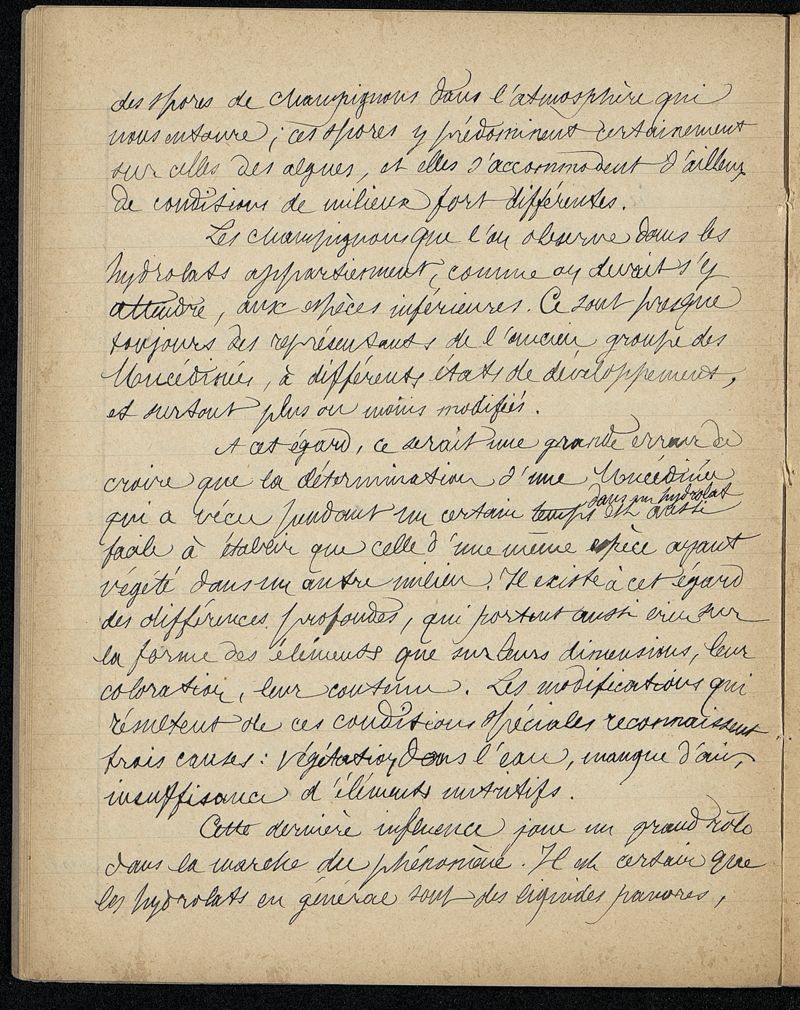 des spores de champignons dans l'atmosphère qui
nous entoure ; ces spores y prédominent certainement
sur celles des algues, et elles s'accommodent d'ailleurs
de conditions de milieux fort différentes.
Les champignons que l'on observe dans les
hydrolats appartiennent, comme on devait s'y
attendre, aux espèces inférieures. Ce sont presque
toujours des représentants de l'ancien groupe des
Mucédinées, à différents états de développement,
et surtout plus ou moins modifiés.
A cet égard, ce serait une grande erreur de
croire que la détermination d'une Mucédinée
dans un hydrolat
qui a vécu pendant un certain temps est aussi
facile à établir que celle d'une même espèce ayant
végété dans un autre milieu. Il existe à cet égard
des différences profondes, qui portent aussi bien sur
la forme des éléments que sur leurs dimensions, leur
coloration, leur contenu. Les modifications qui
résultent de ces conditions spéciales reconnaissent
trois causes : végétation dans l'eau, manque d'air,
insuffisance d'éléments nutritifs.
Cette dernière influence joue un grand rôle
dans la marche du phénomène. Il est certain que
les hydrolats en général sont des liquides pauvres,